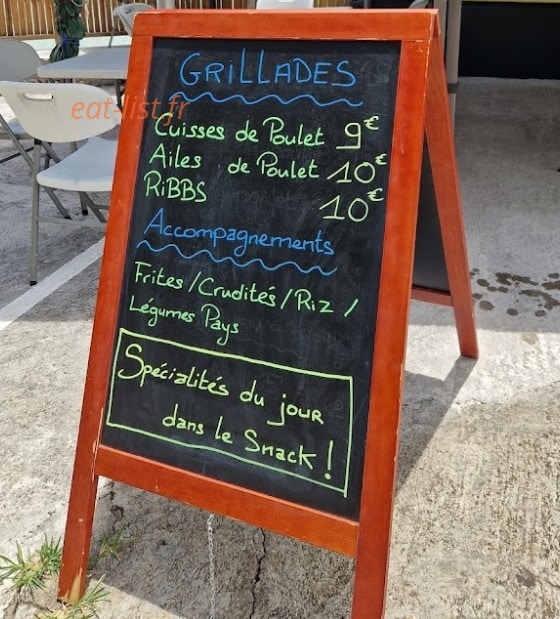 GRILLADES
eat-list.fr
Cuisses de Poulet 9€
Ailes de Poulet 10€
RiBBS 10€
Accompagnements
Frites / Crudités / Riz /
Légumes Pays
Spécialités du jour
dans le Snack !